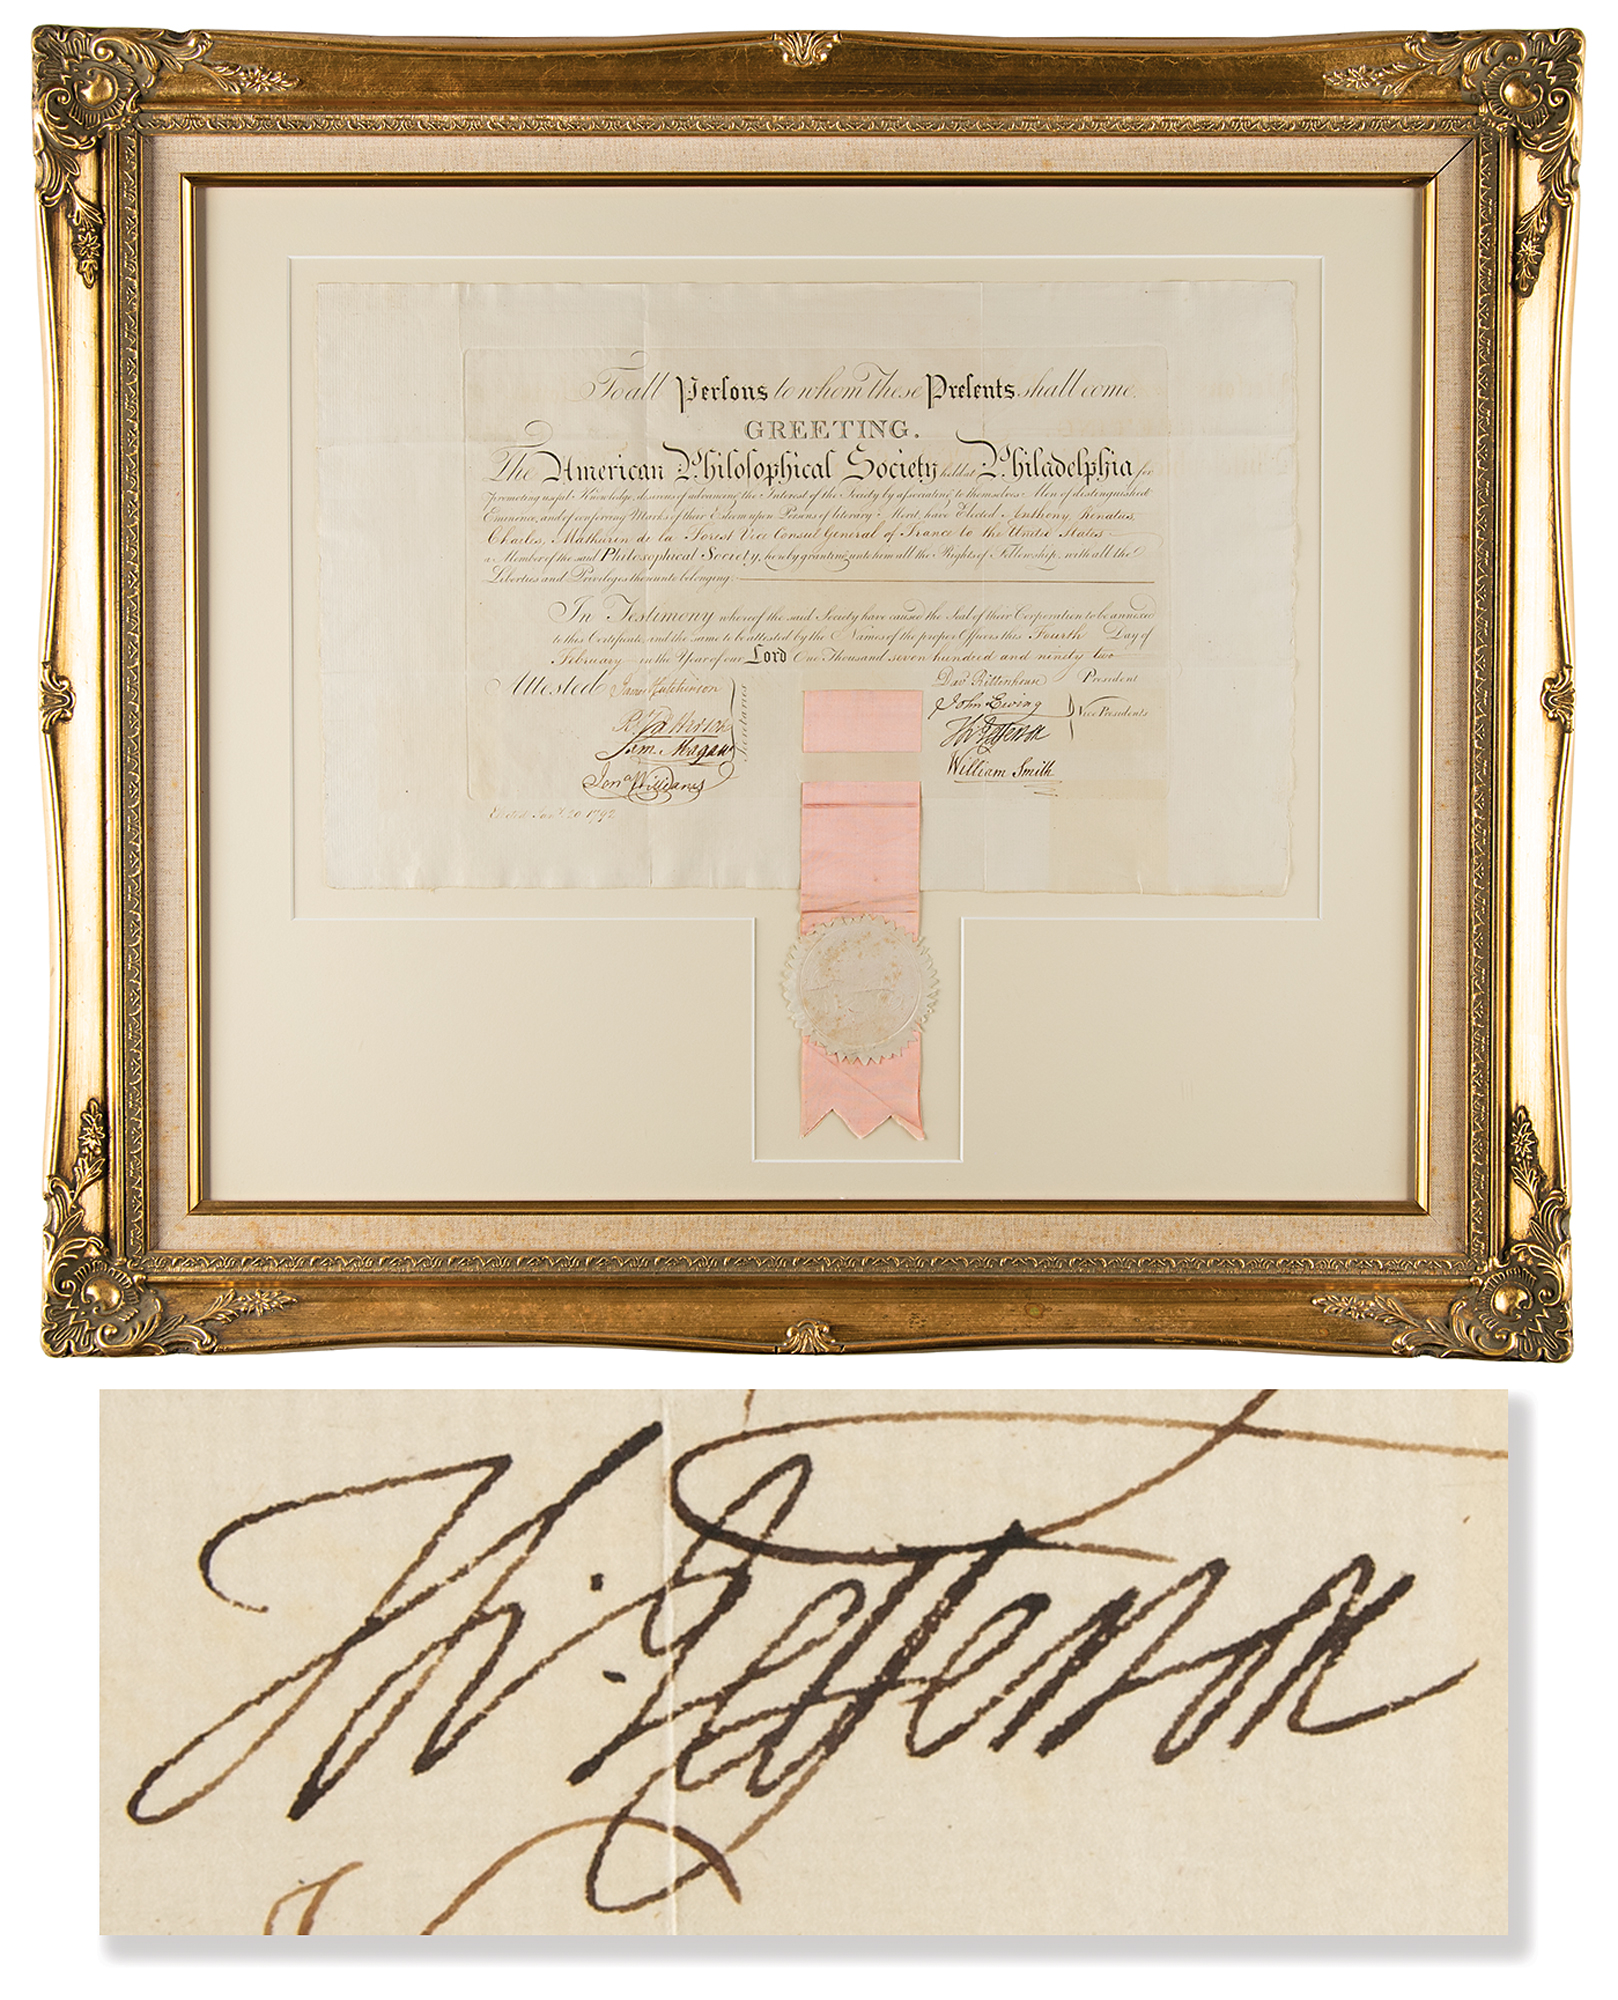 To all Persons to whom these Presents shall come
GREETING.
The American Philosophical Society held at Philadelphia for
promoting useful Knowledge, desirous of advancing the Interest of the Society by associating to themselves Men of distinguished
Eminence, and of conferring Marks of their Esteem upon Persons of literary Merit, have Elected Anthony Renatus,
Charles, Mathurin de la Forest Vice Consul General of France to the United States
a Member of the said Philosophical Society, hereby granting unto him all the Rights of Fellowship, with all the
Liberties and Privileges thereunto belonging.
In Testimony whereof the said Society have caused the Seal of their Corporation to be annexed
to this Certificate, and the same to be attested by the Names of the proper Officers this Fourth Day of
February in the Year of our Lord One Thousand seven hundred and ninety two
Attested James Hutchinson
R. Patterson
Sam. Magaw
Jona. Williams
Secretaries
Dav. Rittenhouse President
John Ewing
Th: Jefferson
William Smith
Vice Presidents
Elected Jany. 20 1792
Th: Jefferson